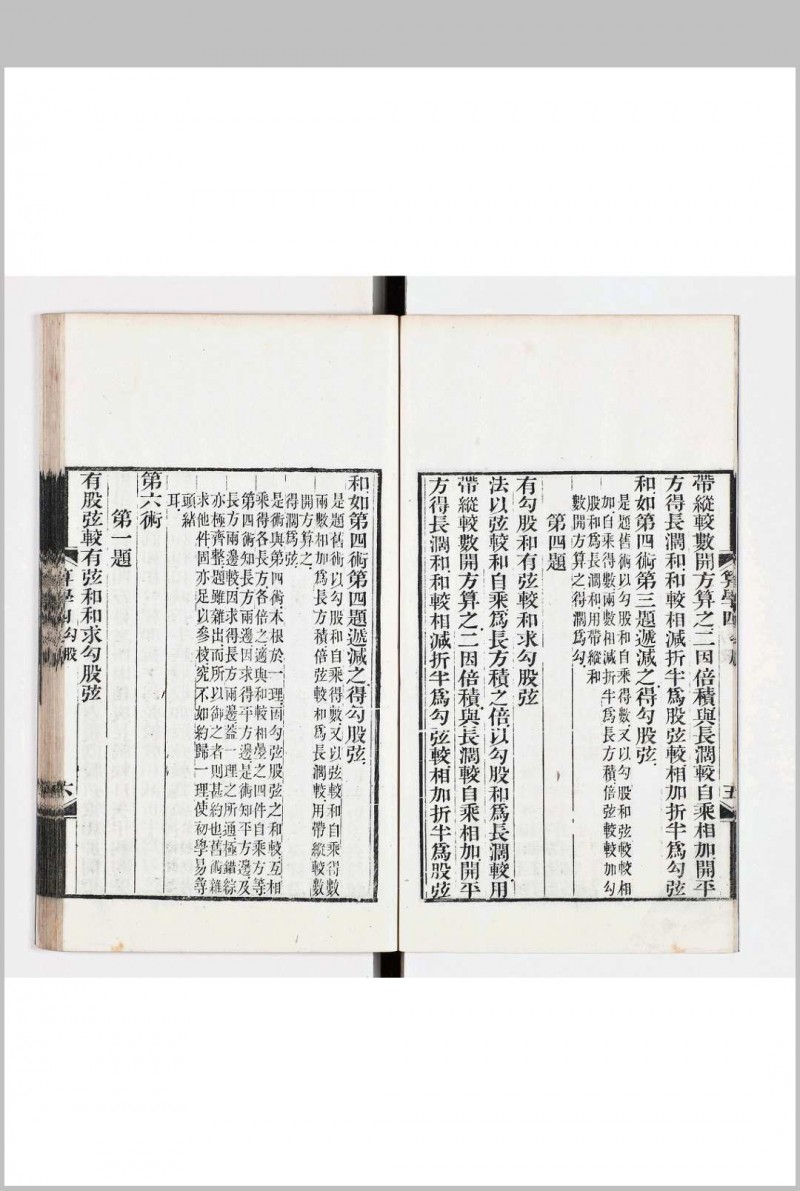 帶縱較數開方算之二因倍積與長濶較自乘相加開平
方得長濶和和較相減折半爲股弦較相加折半爲勾弦
和如第四術第三題遞減之得勾股弦
是題舊術以勾股和自乘得數又以勾股和弦較較相
加自乘得數兩數相減折半爲長方積倍弦較較加勾
股和爲長濶和用帶縱和
數開方算之得濶爲勾
第四題
有勾股和有弦較和求勾股弦
法以弦較和自乘爲長方積之倍以勾股和爲長濶較用
帶縱較數開方算之二因倍積與長濶較自乘相加開平
方得長濶和和較相減折半爲勾弦較相加折半爲股弦
五
和如第四術第四題遞減之得勾股弦
是題舊術以勾股和自乘得數又以弦較和自乘得數
兩數相加爲長方積倍弦較和爲長濶較用帶縱較數
開方算之
得濶爲弦
是術與第四術本根於一理因勾弦股弦之和較互相
乘得各長方各倍之適與和較相學之四件自乘方等
第四術知長方兩邊因求得平方邊是術知平方邊及
長方兩邊較因求得長方兩邊蓋一理之所通極錯綜
亦極齊整題雖雜出而所以御之者則甚約也舊術雜
求他件固亦足以參校究不如約歸一理使初學易尋
頭緒
耳
第六術
第一題
有股弦較有弦和和求勾股弦
勾股
六